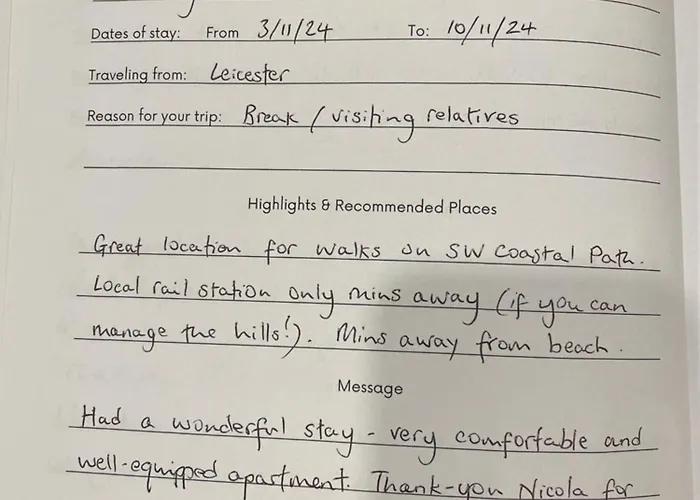 Dates of stay: From 3/11/24 To: 10/11/24
Traveling from: Leicester
Reason for your trip: Break / visiting relatives
Highlights & Recommended Places
Great location for walks on SW Coastal Path.
Local rail station only mins away (if you can
manage the hills!). Mins away from beach.
Message
Had a wonderful stay - very comfortable and
well-equipped apartment. Thank-you Nicola for